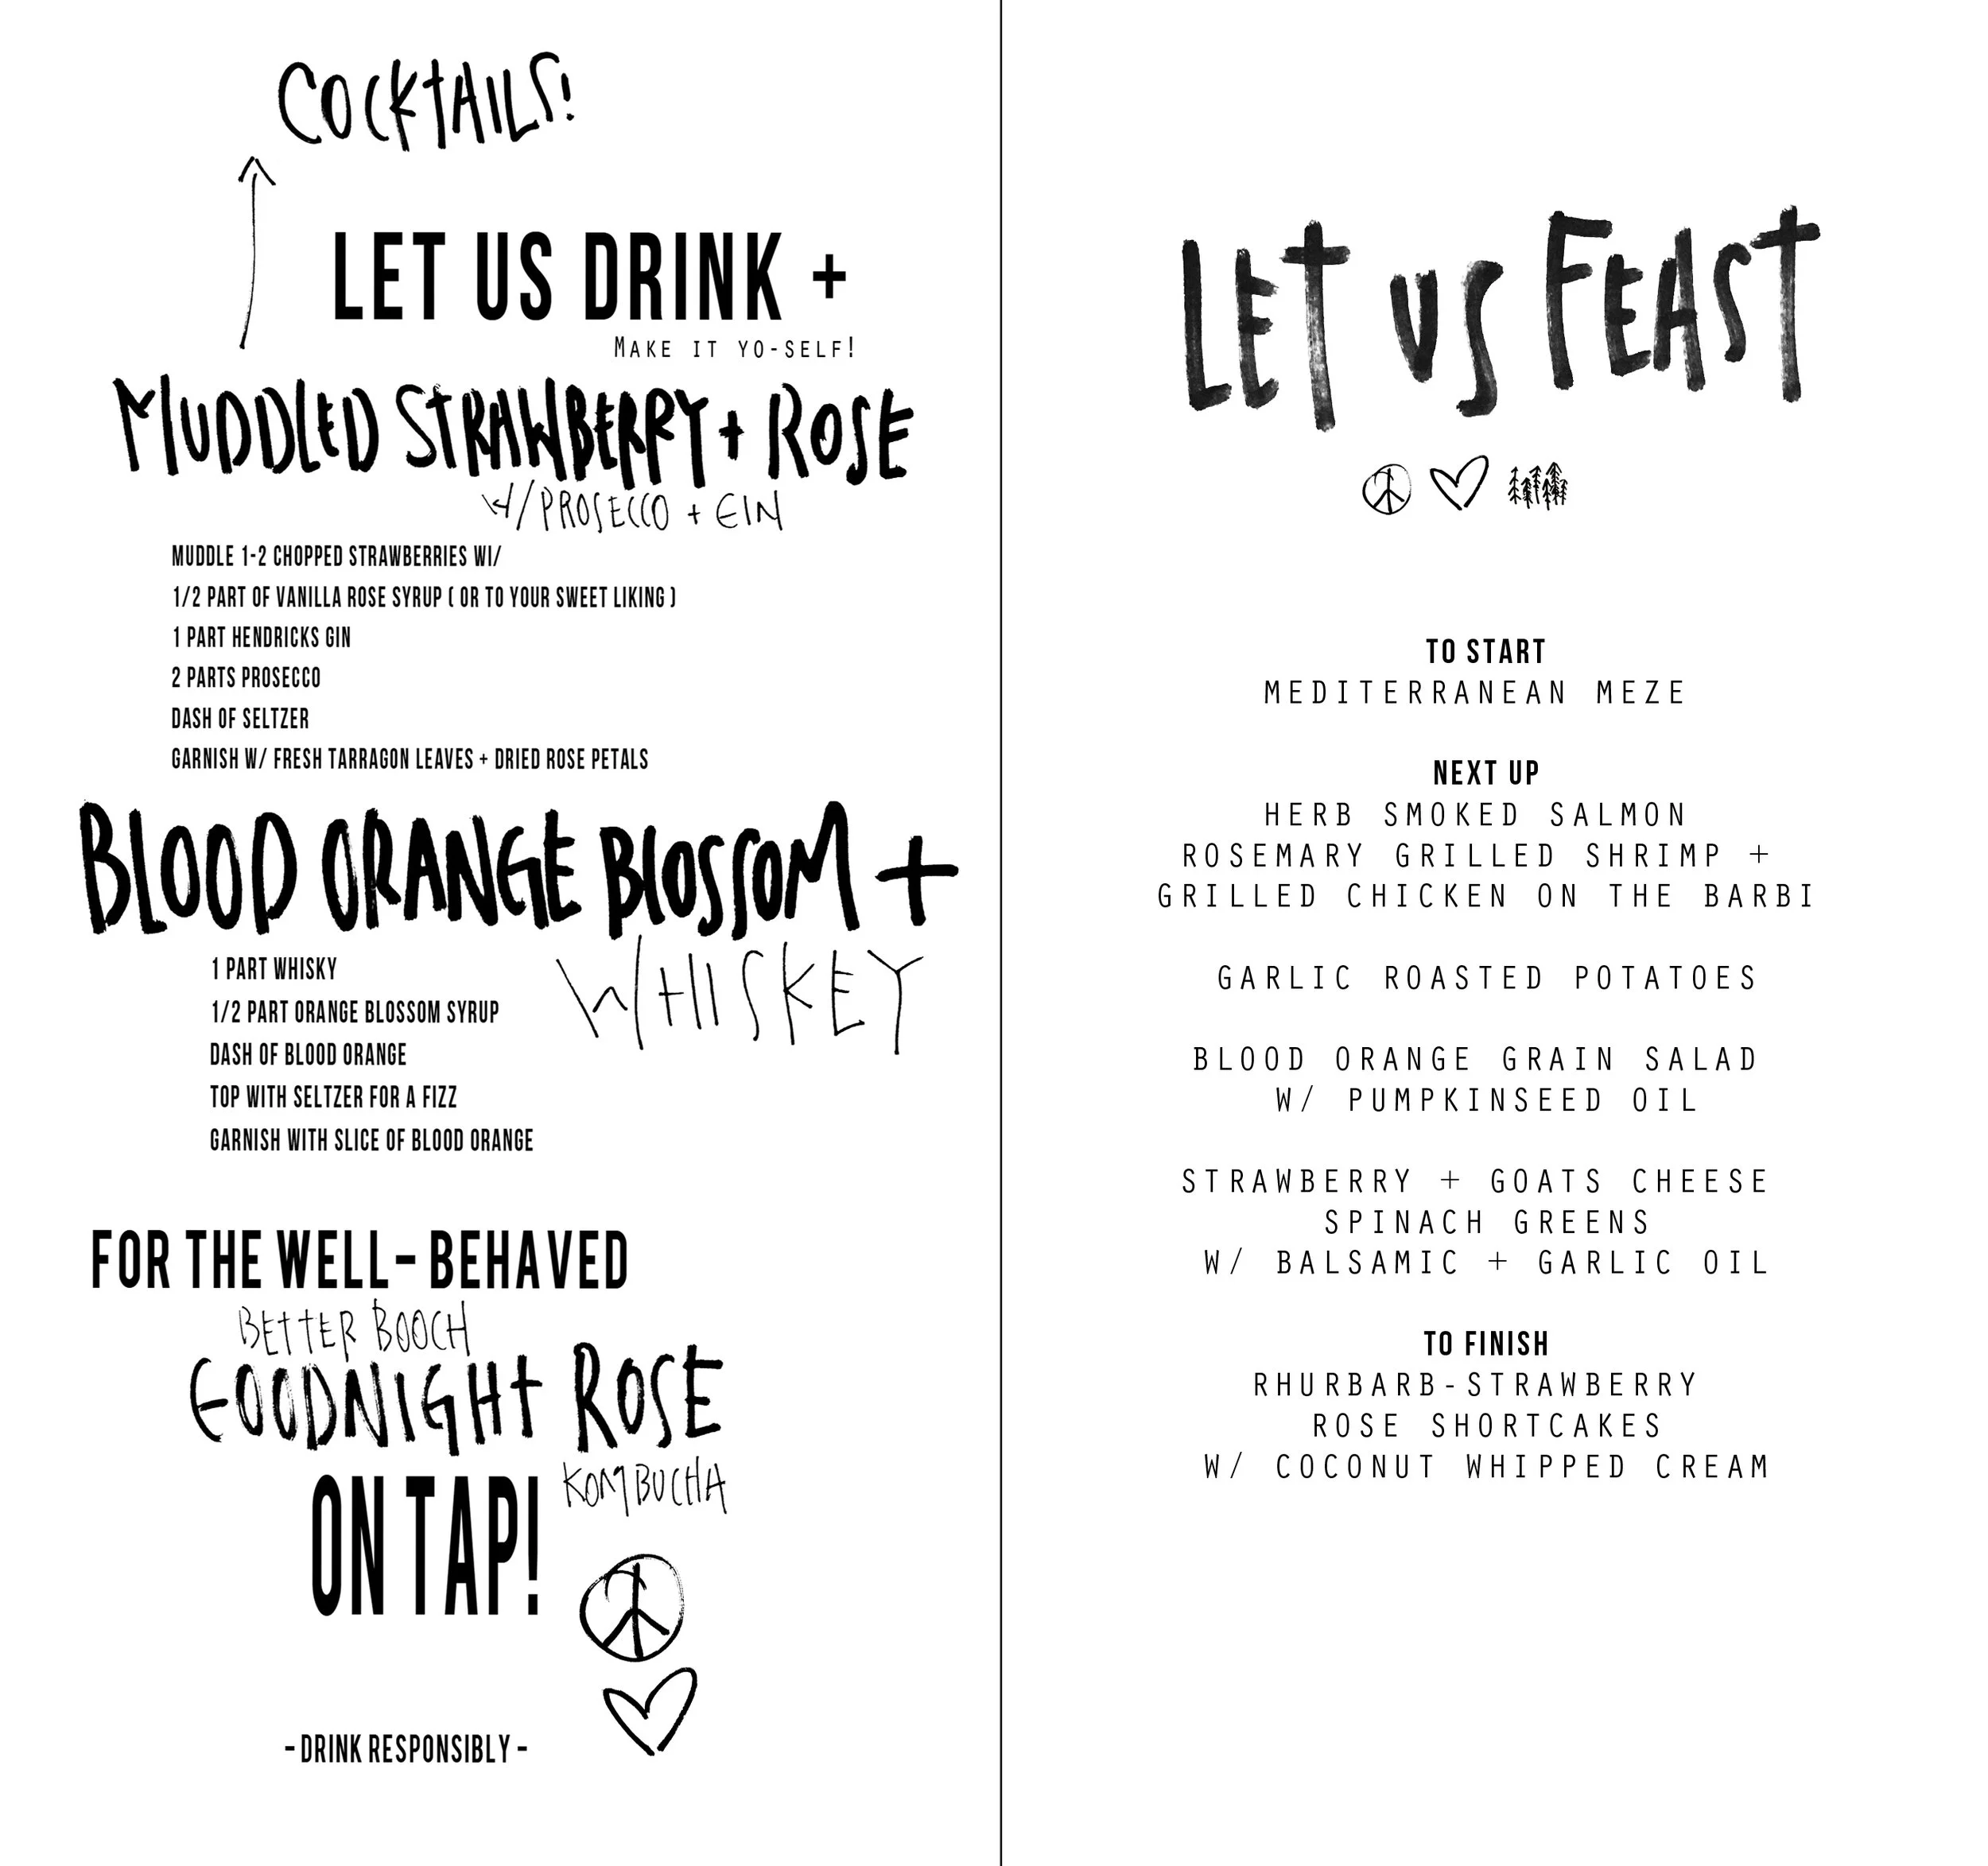 COCKTAILS!
LET US DRINK +
MAKE IT YO-SELF!
MUDDLED STRAWBERRY + ROSE
W/ PROSECCO + GIN
MUDDLE 1-2 CHOPPED STRAWBERRIES WI/
1/2 PART OF VANILLA ROSE SYRUP ( OR TO YOUR SWEET LIKING )
1 PART HENDRICKS GIN
2 PARTS PROSECCO
DASH OF SELTZER
GARNISH W/ FRESH TARRAGON LEAVES + DRIED ROSE PETALS
BLOOD ORANGE BLOSSOM +
WHISKEY
1 PART WHISKY
1/2 PART ORANGE BLOSSOM SYRUP
DASH OF BLOOD ORANGE
TOP WITH SELTZER FOR A FIZZ
GARNISH WITH SLICE OF BLOOD ORANGE
FOR THE WELL-BEHAVED
BETTER BOOCH
GOODNIGHT ROSE
KOMBUCHA
ON TAP!
- DRINK RESPONSIBLY -
LET US FEAST
TO START
MEDITERRANEAN MEZE
NEXT UP
HERB SMOKED SALMON
ROSEMARY GRILLED SHRIMP +
GRILLED CHICKEN ON THE BARBI
GARLIC ROASTED POTATOES
BLOOD ORANGE GRAIN SALAD
W/ PUMPKINSEED OIL
STRAWBERRY + GOATS CHEESE
SPINACH GREENS
W/ BALSAMIC + GARLIC OIL
TO FINISH
RHURBARB-STRAWBERRY
ROSE SHORTCAKES
W/ COCONUT WHIPPED CREAM